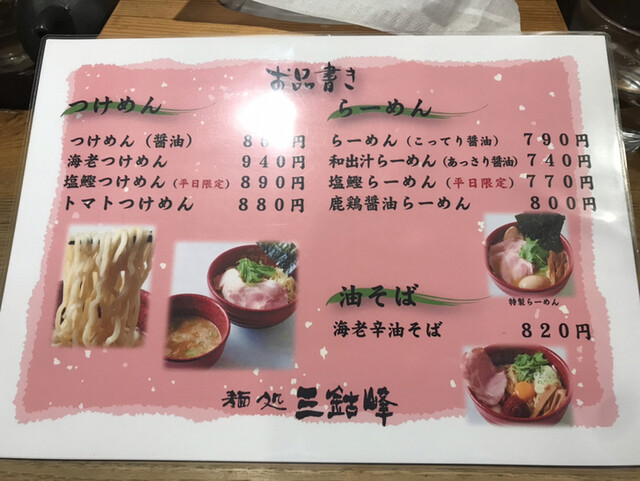 お品書き
つけめん
つけめん（醤油）
海老つけめん 940円
塩鰹つけめん（平日限定） 890円
トマトつけめん 880円
らーめん
らーめん（こってり醤油） 790円
和出汁らーめん（あっさり醤油） 740円
塩鰹らーめん（平日限定） 770円
鹿鶏醤油らーめん 800円
特製らーめん
油そば
海老辛油そば 820円
麺処 三鈷峰